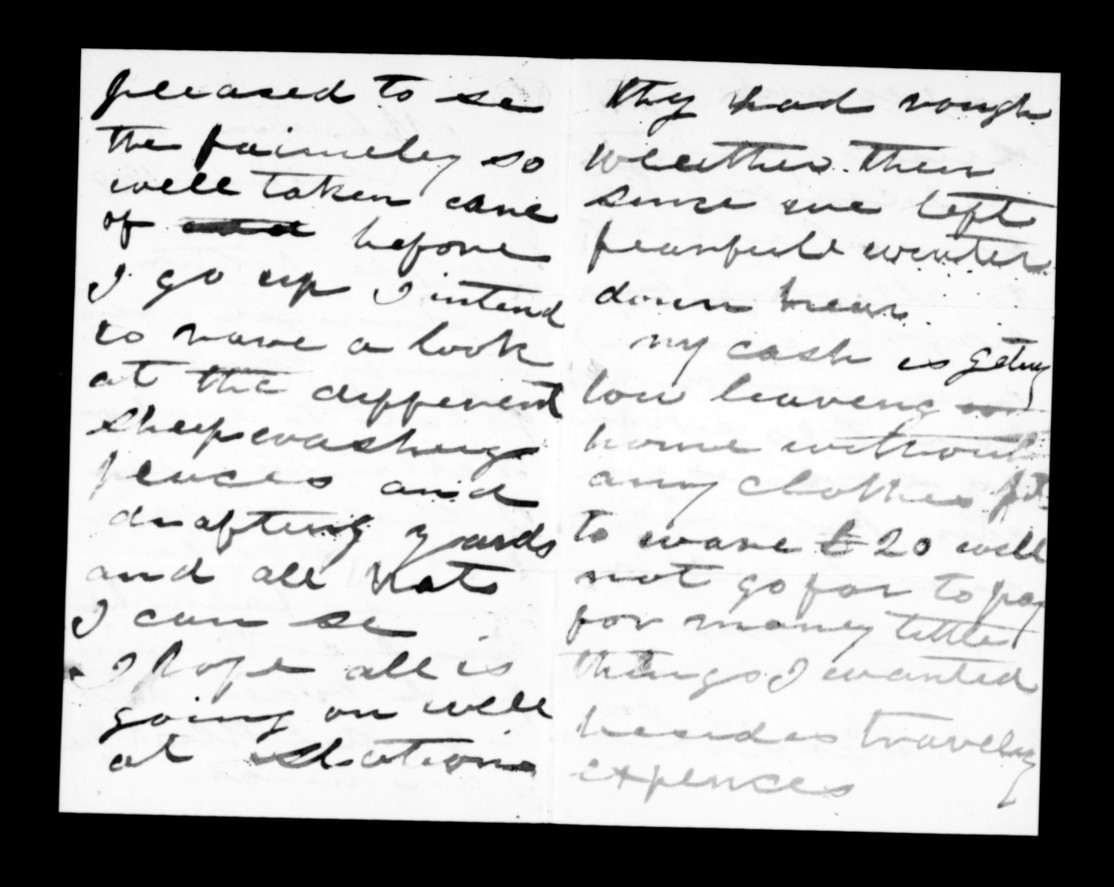 pleased to se
the faimeley so
well taken care
of before
I go up I intend
to have a look
at the different
sheepwashing
plaices and
drafting yards
and all kats
I can se
I hope all is
going on well
at station
thy had rough
weather then
since we left
fearfull winter
down hear
my cash is geting
low leaveng
home without
any clothes fit
to ware £20 will
not go far to pay
for maney little
things I wanted
besides traveling
expences